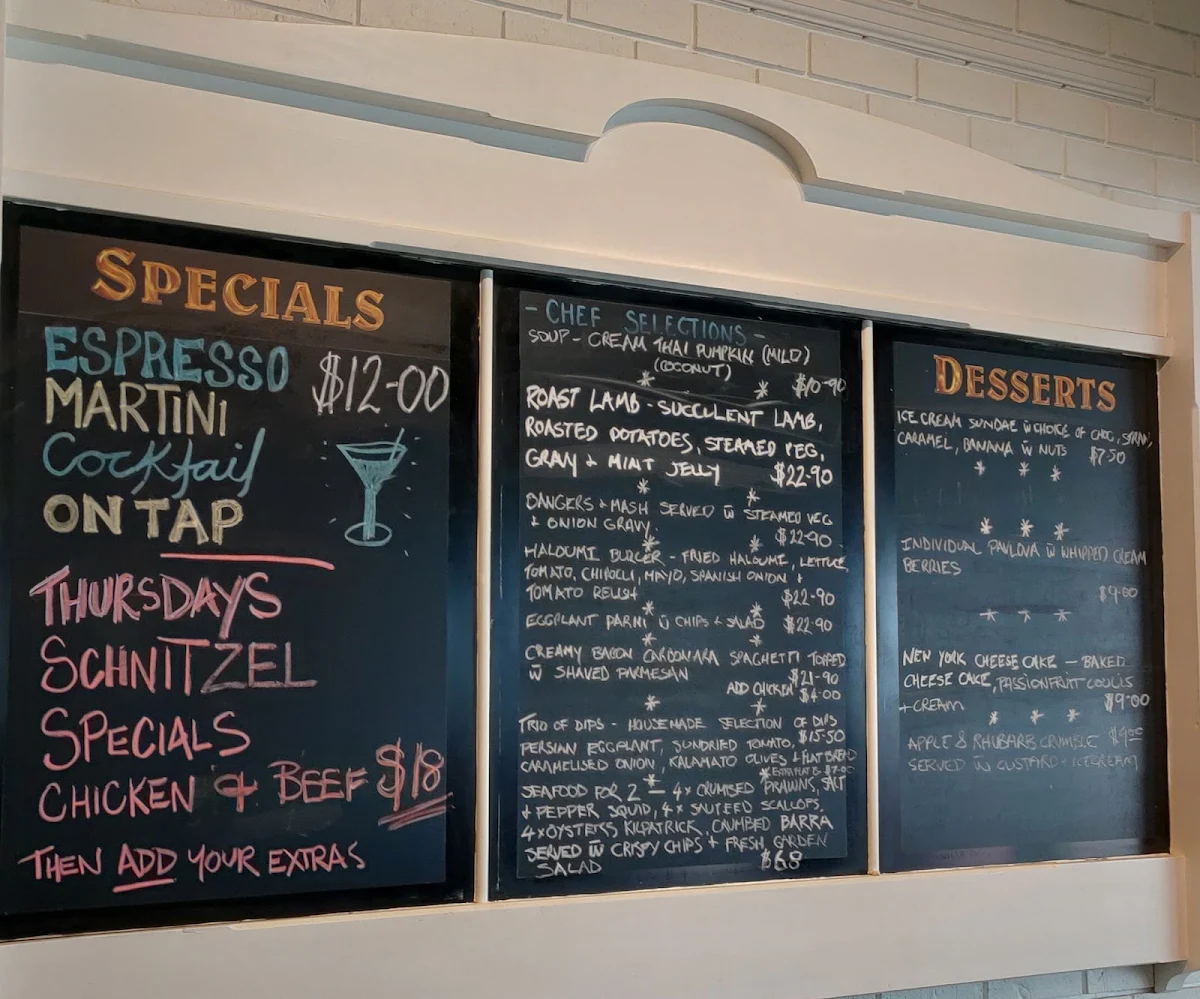 SPECIALS
ESPRESSO
MARTINI $12-00
Cocktail
ON TAP
THURSDAYS
SCHNITZEL
SPECIALS
CHICKEN & BEEF $18
THEN ADD YOUR EXTRAS
- CHEF SELECTIONS -
SOUP - CREAM THAI PUMPKIN (MILD)
(COCONUT)
* * $10-90
ROAST LAMB - SUCCULENT LAMB,
ROASTED POTATOES, STEAMED VEG,
GRAVY + MINT JELLY $22-90
* *
BANGERS + MASH SERVED W̄ STEAMED VEG
+ ONION GRAVY. $22-90
* *
HALOUMI BURGER - FRIED HALOUMI, LETTUCE,
TOMATO, CHIPOLLI, MAYO, SPANISH ONION +
TOMATO RELISH $22-90
* *
EGGPLANT PARMI W̄ CHIPS + SALAD $22-90
* *
CREAMY BACON CARBONARA SPAGHETTI TOPPED
W̄ SHAVED PARMESAN $21-90
ADD CHICKEN $4-00
* *
TRIO OF DIPS - HOUSEMADE SELECTION OF DIPS
$15-50
PERSIAN EGGPLANT, SUNDRIED TOMATO,
CARAMELISED ONION, KALAMATO OLIVES + FLATBREAD
*
SEAFOOD FOR 2 - 4 x CRUMBED PRAWNS, SALT
+ PEPPER SQUID, 4 x SAUTEED SCALLOPS,
4 x OYSTERS KILPATRICK, CRUMBED BARRA
SERVED W̄ CRISPY CHIPS + FRESH GARDEN
SALAD $68
DESSERTS
ICE CREAM SUNDAE W̄ CHOICE OF CHOC, STRAW,
CARAMEL, BANANA W̄ NUTS $7-50
* * *
* * *
INDIVIDUAL PAVLOVA W̄ WHIPPED CREAM
BERRIES
$9-00
* * *
NEW YORK CHEESE CAKE - BAKED
CHEESE CAKE, PASSIONFRUIT COULIS
+ CREAM $9-00
* * *
APPLE & RHUBARB CRUMBLE
SERVED W̄ CUSTARD + ICECREAM